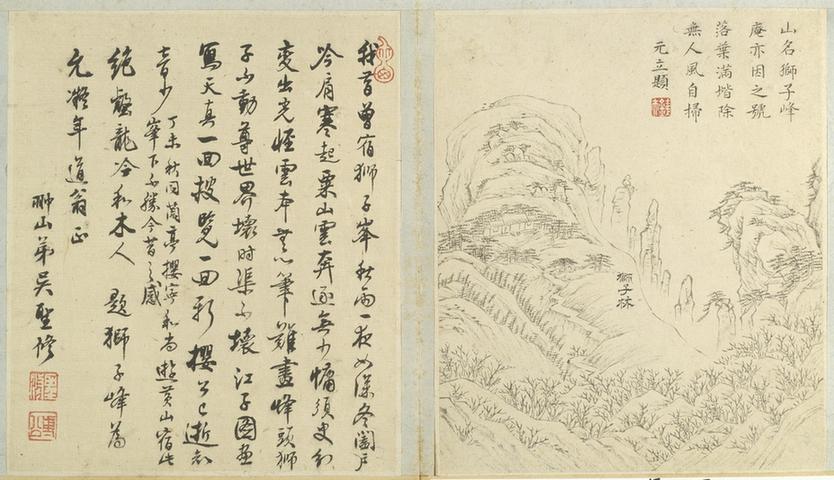 山名獅子峰
庵亦因之號
落葉滿堦除
無人風自掃
元立題
獅子林
我昔曾宿獅子峯秋雨一夜如深冬闔戶
吟肩寒起粟山雲奔逐無少慵須臾幻
變出光怪雲本無心筆難畫峰頭獅
子不動尊世界壞時渠不壞江子圖畫
寫天真一回披覽一回新櫻公已逝知
音少
丁未秋同蘭亭櫻寧和尚遊黃山宿此
峯下不勝今昔之感
絕壑龍冷和木人 題獅子峰為
允凝年道翁正
山弟吳聖修